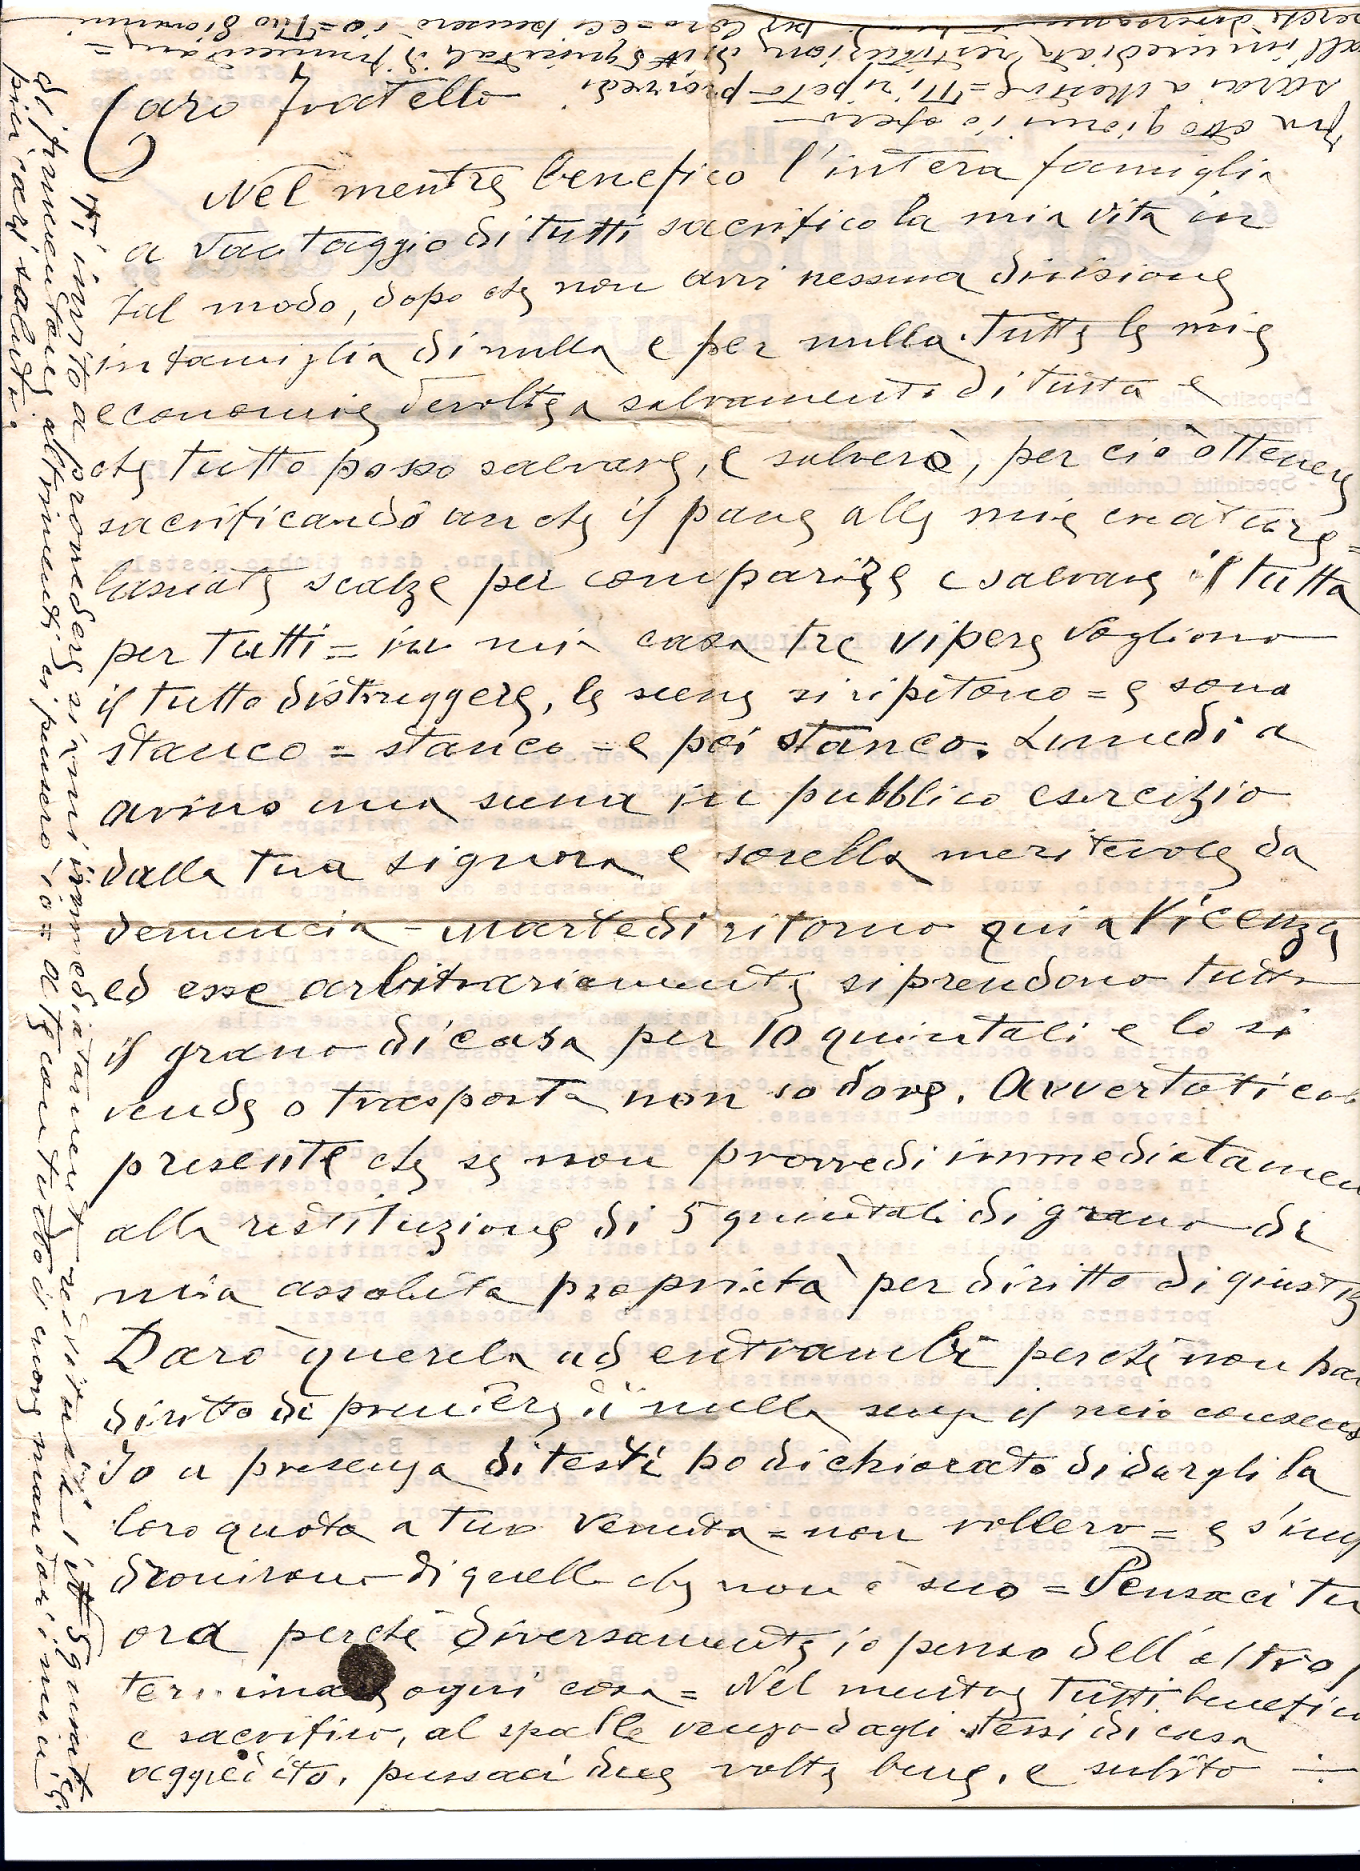 Caro Fratello
Nel mentre benefico l'intera famiglia
a vantaggio di tutti sacrifico la mia vita in
tal modo, dopo che non avvi nessuna divisione
in famiglia di nulla e per nulla. Tutte le mie
economie devolte a salvamento di tutta e
che tutto posso salvare, e salverò, per ciò ottenere
sacrificando anche il pane alle mie creature =
lasciate scalze per comparire e salvare il tutta
per tutti = in mia casa tre vipere vogliono
il tutto distruggere, le scene si ripetono = e sono
stanco = stanco = e poi stanco. Lunedi a
avino una scena in pubblico esercizio
dalla tua signora e sorella meritevole da
denuncia - Martedi ritorno qui a Vicenza
ed esse arbitrariamente si prendono tutto
il grano di casa per 10 quintali e lo si
vende o trasporta non so dove. Avvertoti col
presente che se non provvedi immediatamen
alla restituzione di 5 quintali di grano di
mia assoluta proprietà per diritto di giustiz
Darò querela ad entrambi perche non han
diritto di premere di nulla senza il mio consenso
Io a presenza di testi ho dichiarato di dargli la
loro quota a tua venuta = non vollero = e s'imp
dronirono di quello che non è suo = Pensaci tu
ora perchè diversamente io penso dell'altro
terminare ogni cosa = Nel mentre tutti benefico
e sacrifico, al spalle vengo dagli stessi di casa
aggredito. pensaci due volte bene. e subito
Ti invito a provvedere si mi immediatamente restituire i 5 quintali
di frumentone altrimenti ci pensero io = a te con tutto il cuore mandari i miei
piu cari saluti.
Fra otto giorni io spero
sarai a Mestre = Ti ripeto provvedi
all'immediata restituzione di 5 quintali di frumentone =
perche diversamente per loro = ci pensero io = Tuo Giovanni